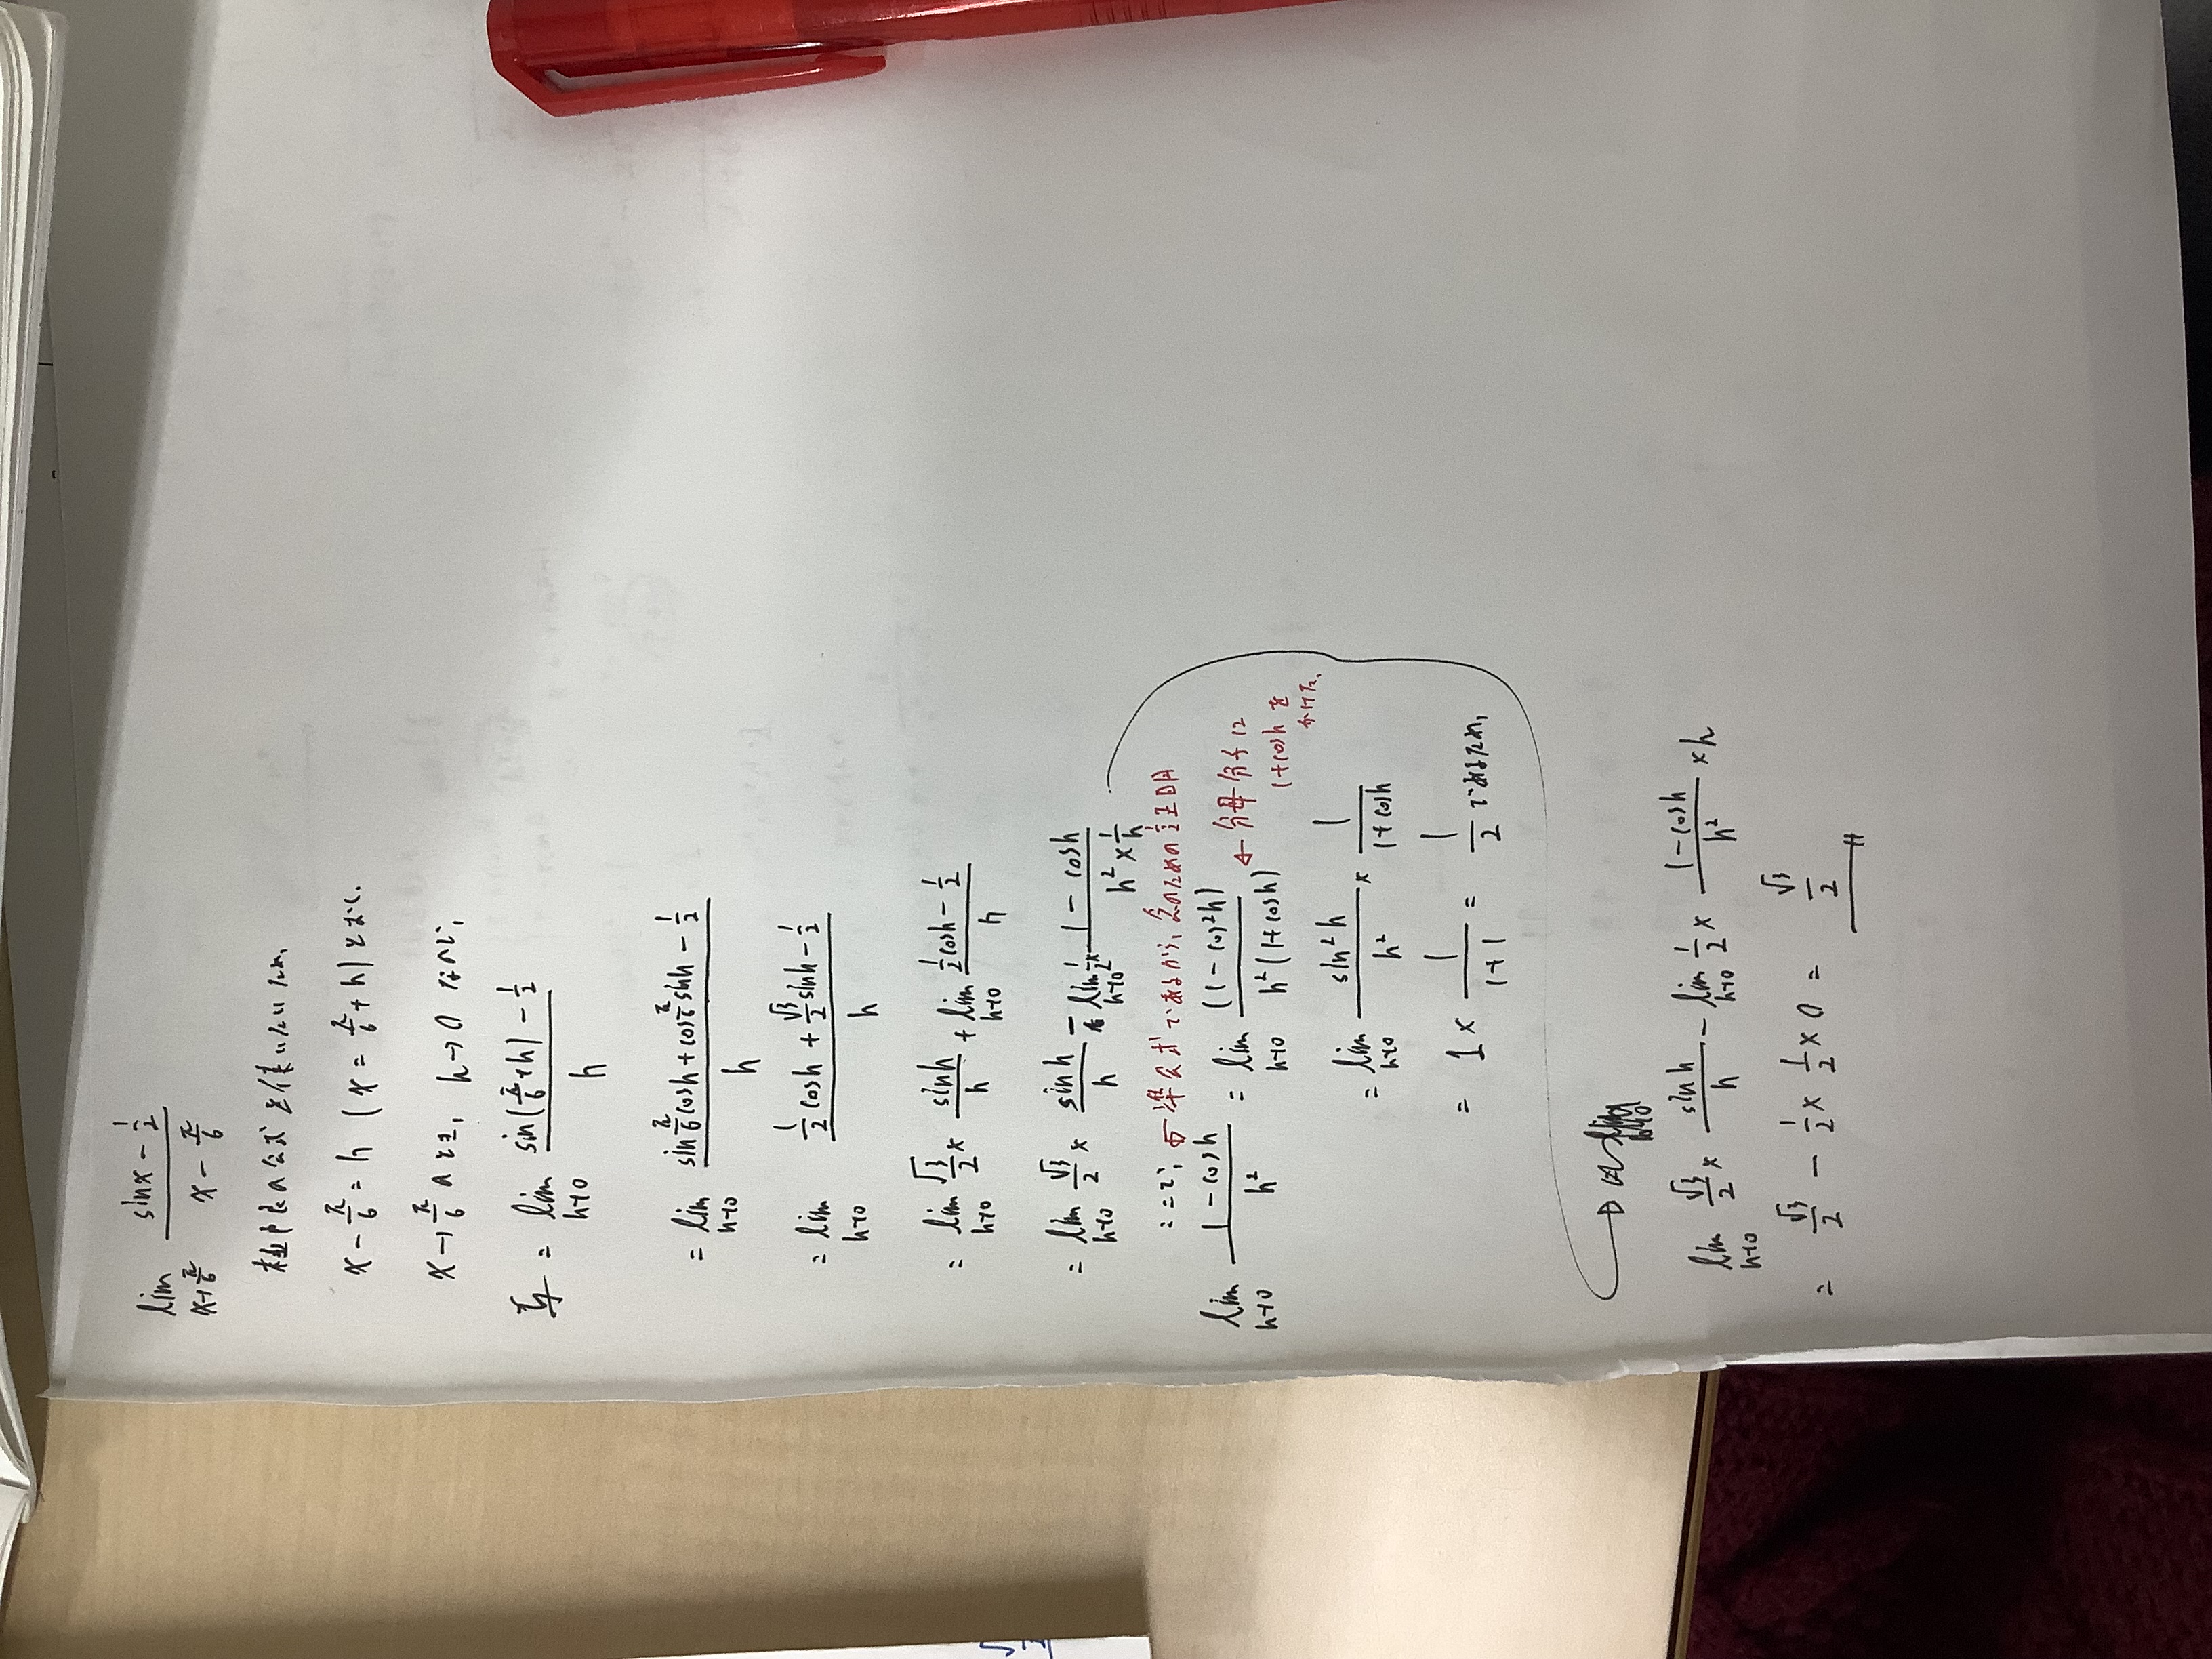 lim x→π/6 (sinx − 1/2)/(x − π/6)
極限の公式を使いたいため
x − π/6 = h (x = π/6 + h) とおく.
x→π/6 のとき, h→0 なので,
与 = lim h→0 (sin(π/6 + h) − 1/2)/h
= lim h→0 (sin π/6 cosh + cos π/6 sinh − 1/2)/h
= lim h→0 (1/2 cosh + √3/2 sinh − 1/2)/h
= lim h→0 √3/2 × sinh/h + lim h→0 (1/2 cosh − 1/2)/h
= lim h→0 √3/2 × sinh/h − lim h→0 1/2 × (1 − cosh)/(h² × 1/h)
ここで, 準公式であるが, 念のための証明
lim h→0 (1 − cosh)/h² = lim h→0 (1 − cos²h)/(h²(1 + cosh)) ← 分母分子に 1+cosh を かけた.
= lim h→0 sin²h/h² × 1/(1 + cosh)
= 1 × 1/(1+1) = 1/2 であるため,
lim h→0 √3/2 × sinh/h − lim h→0 1/2 × (1 − cosh)/h² × h
= √3/2 − 1/2 × 1/2 × 0 = √3/2